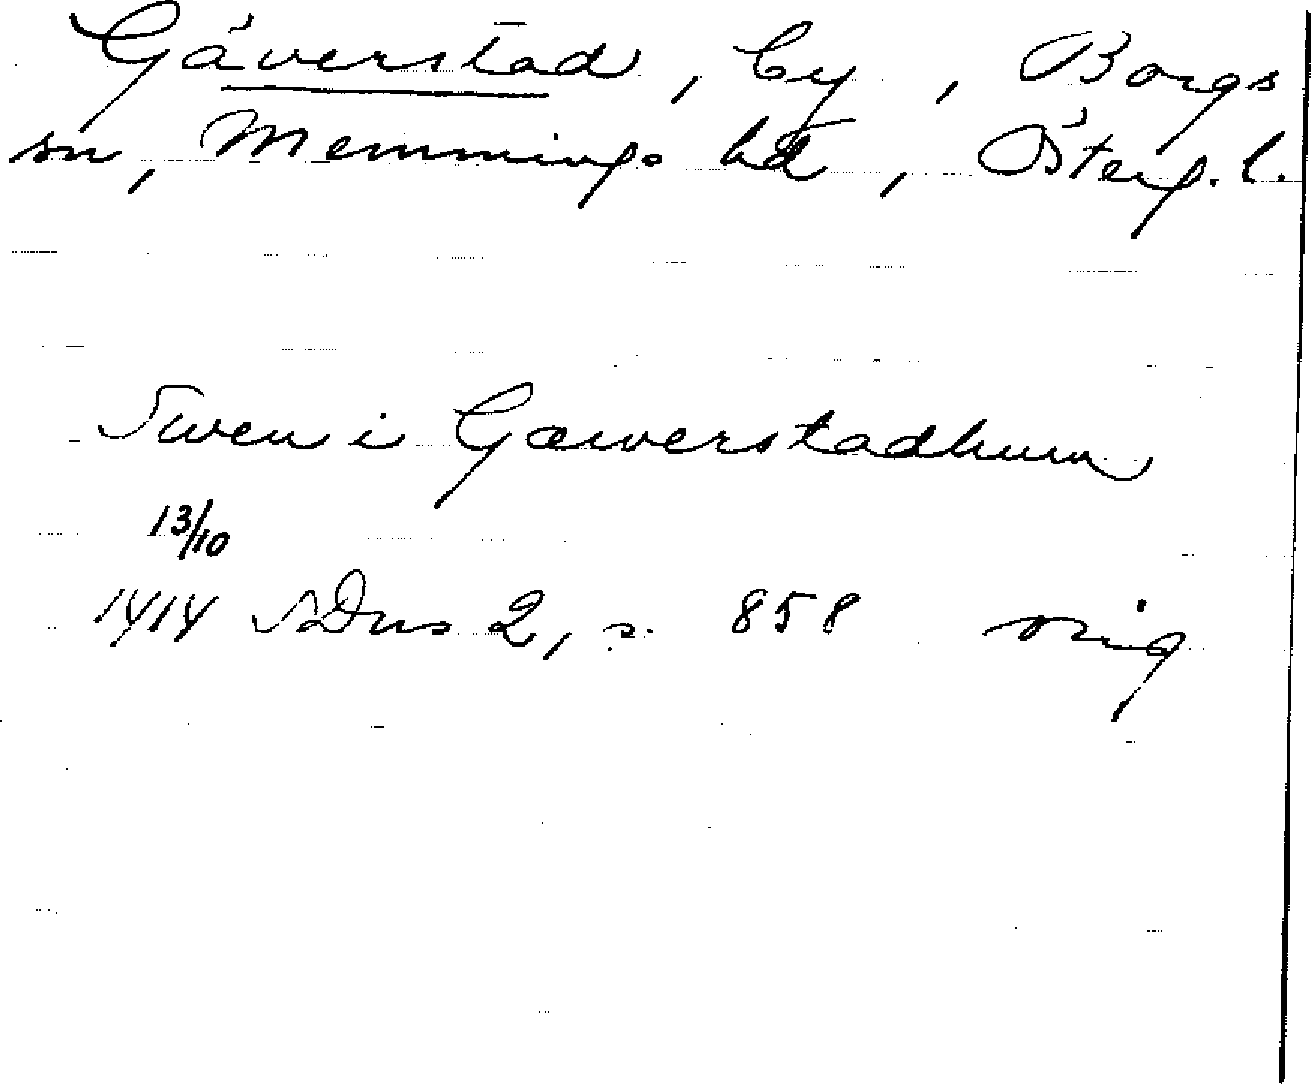 Gäverstad, by, Borgs
sn, Memmings hd, Österg. l.
Swen i Gæwerstadhum
13/10
1414 SDns 2, s. 858 orig